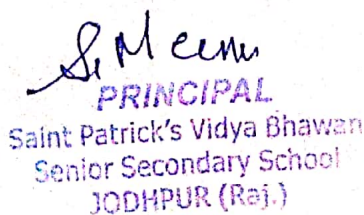 PRINCIPAL
Saint Patrick's Vidya Bhawan
Senior Secondary School
JODHPUR (Raj.)